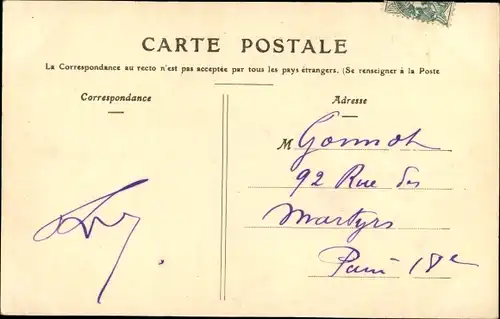 CARTE POSTALE
La Correspondance au recto n'est pas acceptée par tous les pays étrangers. (Se renseigner à la Poste
Correspondance
Adresse
M Gonnot
92 Rue des
Martyrs
Paris 18e